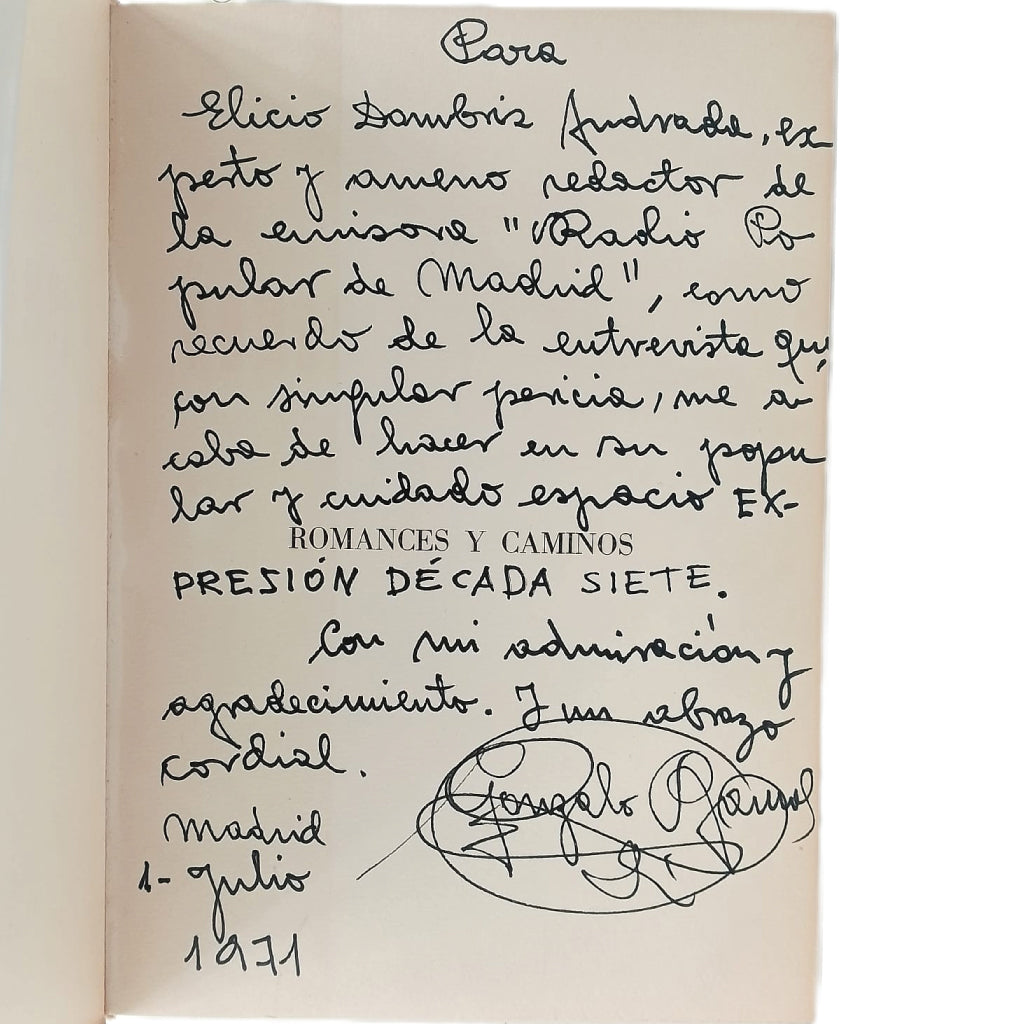 Para
Elicio Dombriz Andrada, ex-
perto y ameno redactor de
la emisora "Radio Po
pular de Madrid", como
recuerdo de la entrevista que,
con singular pericia, me a-
caba de hacer en su popu
lar y cuidado espacio EX-
ROMANCES Y CAMINOS
PRESIÓN DÉCADA SIETE.
Con mi admiración y
agradecimiento. Y un abrazo
cordial.
Gonzalo
Madrid
1- Julio
1971